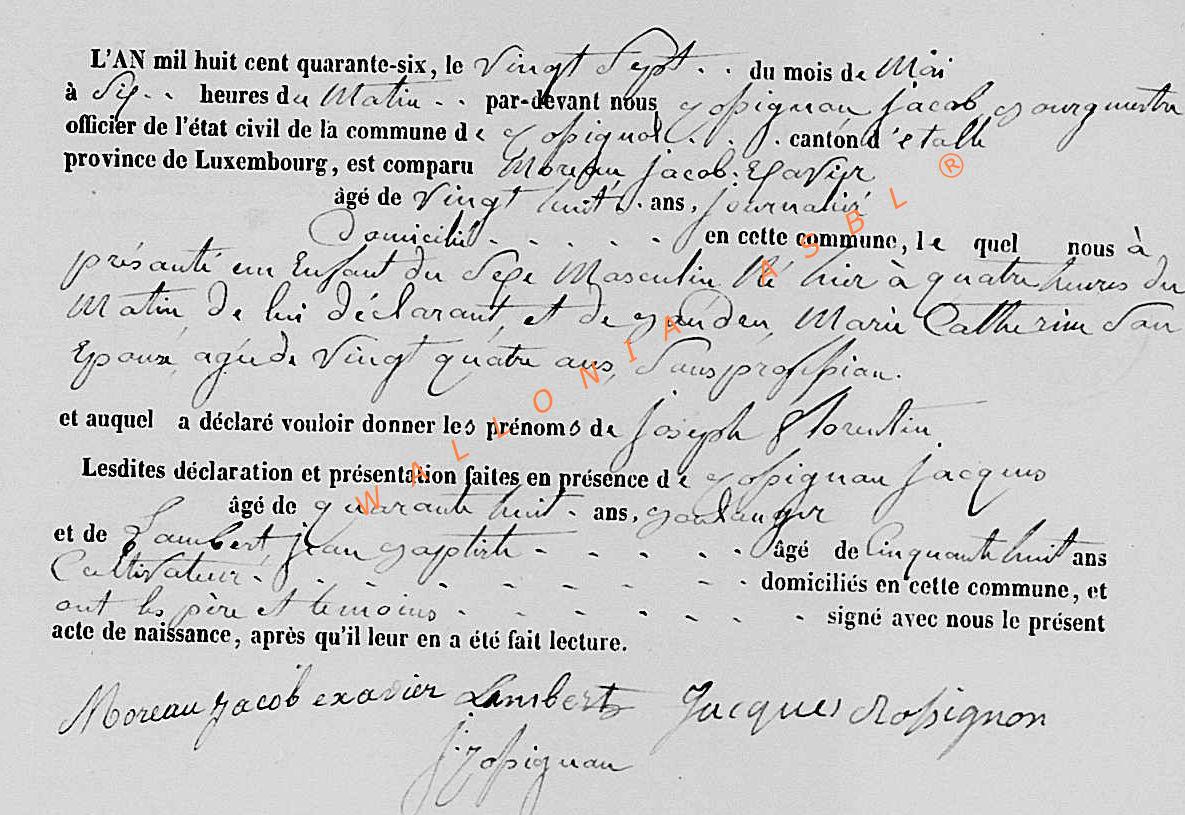 L'AN mil huit cent quarante-six, le Vingt Sept . . du mois de Mai
à Six . . heures du Matin . . par-devant nous Rossignon jacob Bourgmestre
officier de l'état civil de la commune de Rossignol . . . canton d'etalle
province de Luxembourg, est comparu Moreau jacob Exavier
âgé de Vingt huit . ans, journalier
Domicilié - - - - - en cette commune, le quel nous à
présanté un Enfant du Sexe Masculin Né hier à quatre heures du
Matin, de lui déclarant, et de Marie Catherine Son
Epouse, agée de Vingt quatre ans, Sans profession.
et auquel a déclaré vouloir donner les prénoms de joseph Florentin
Lesdites déclaration et présentation faites en présence de Rossignon jacques
âgé de quarante huit - ans, Boulanger
et de Lambert, jean Baptiste - - - - - âgé de Cinquante huit ans
Cultivateur - - - - - - - - domiciliés en cette commune, et
ont les père et temoins - - - - - - signé avec nous le présent
acte de naissance, après qu'il leur en a été fait lecture.
Moreau jacob exavier Lambert Jacques Rossignon
j: Rossignon
WALLONIA ASBL ®